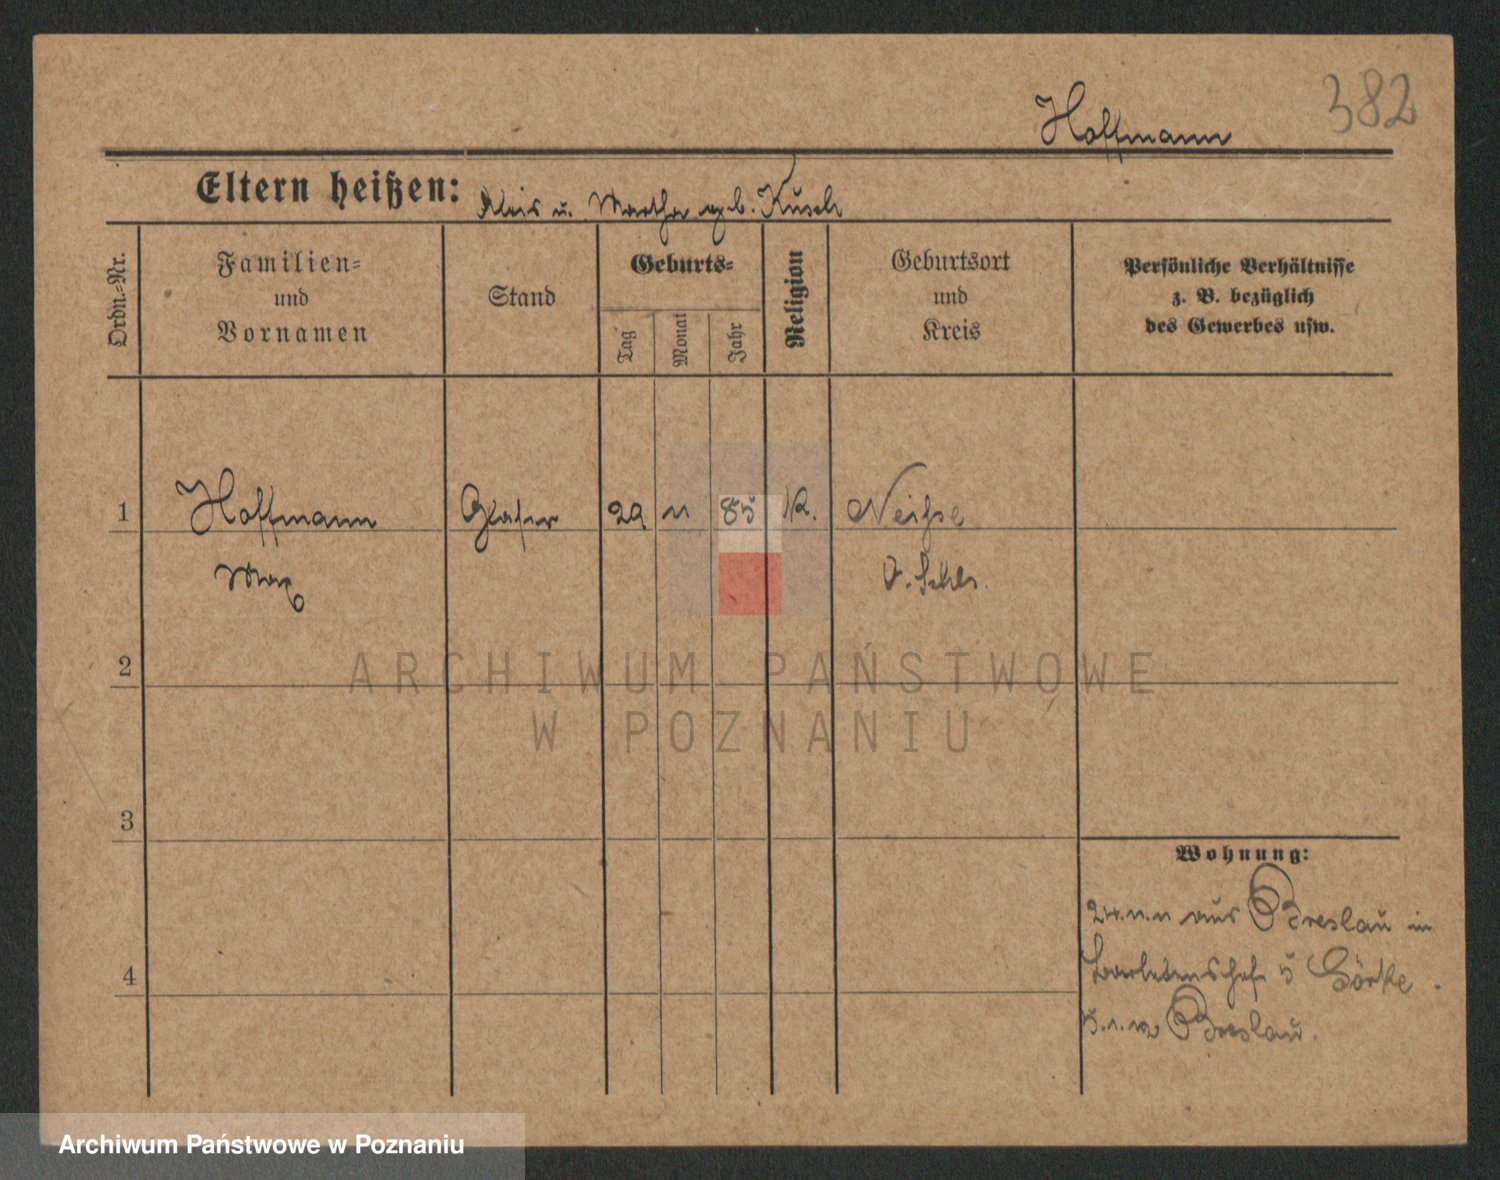 382
Hoffmann
Eltern heißen: Alois u. Martha geb. Kusch
Ordn.=Nr.
Familien=
und
Vornamen
Stand
Geburts=
Tag
Monat
Jahr
Religion
Geburtsort
und
Kreis
Persönliche Verhältnisse
z. B. bezüglich
des Gewerbes usw.
1 Hoffmann Glaser 29 11 85 K. Neisse
Max O. Schles.
2
ARCHIWUM PAŃSTWOWE
W POZNANIU
3
Wohnung:
aus Breslau in
5 Görke
4
Breslau.
Archiwum Państwowe w Poznaniu